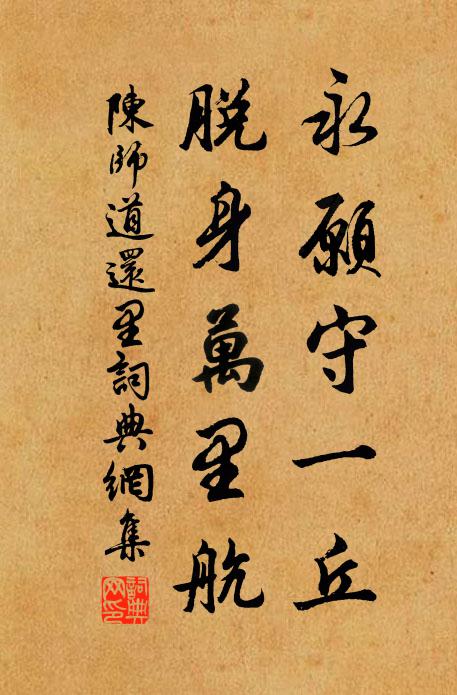 永願守一丘
脫身萬里航
陳師道還里詞典網集
詞典
网印